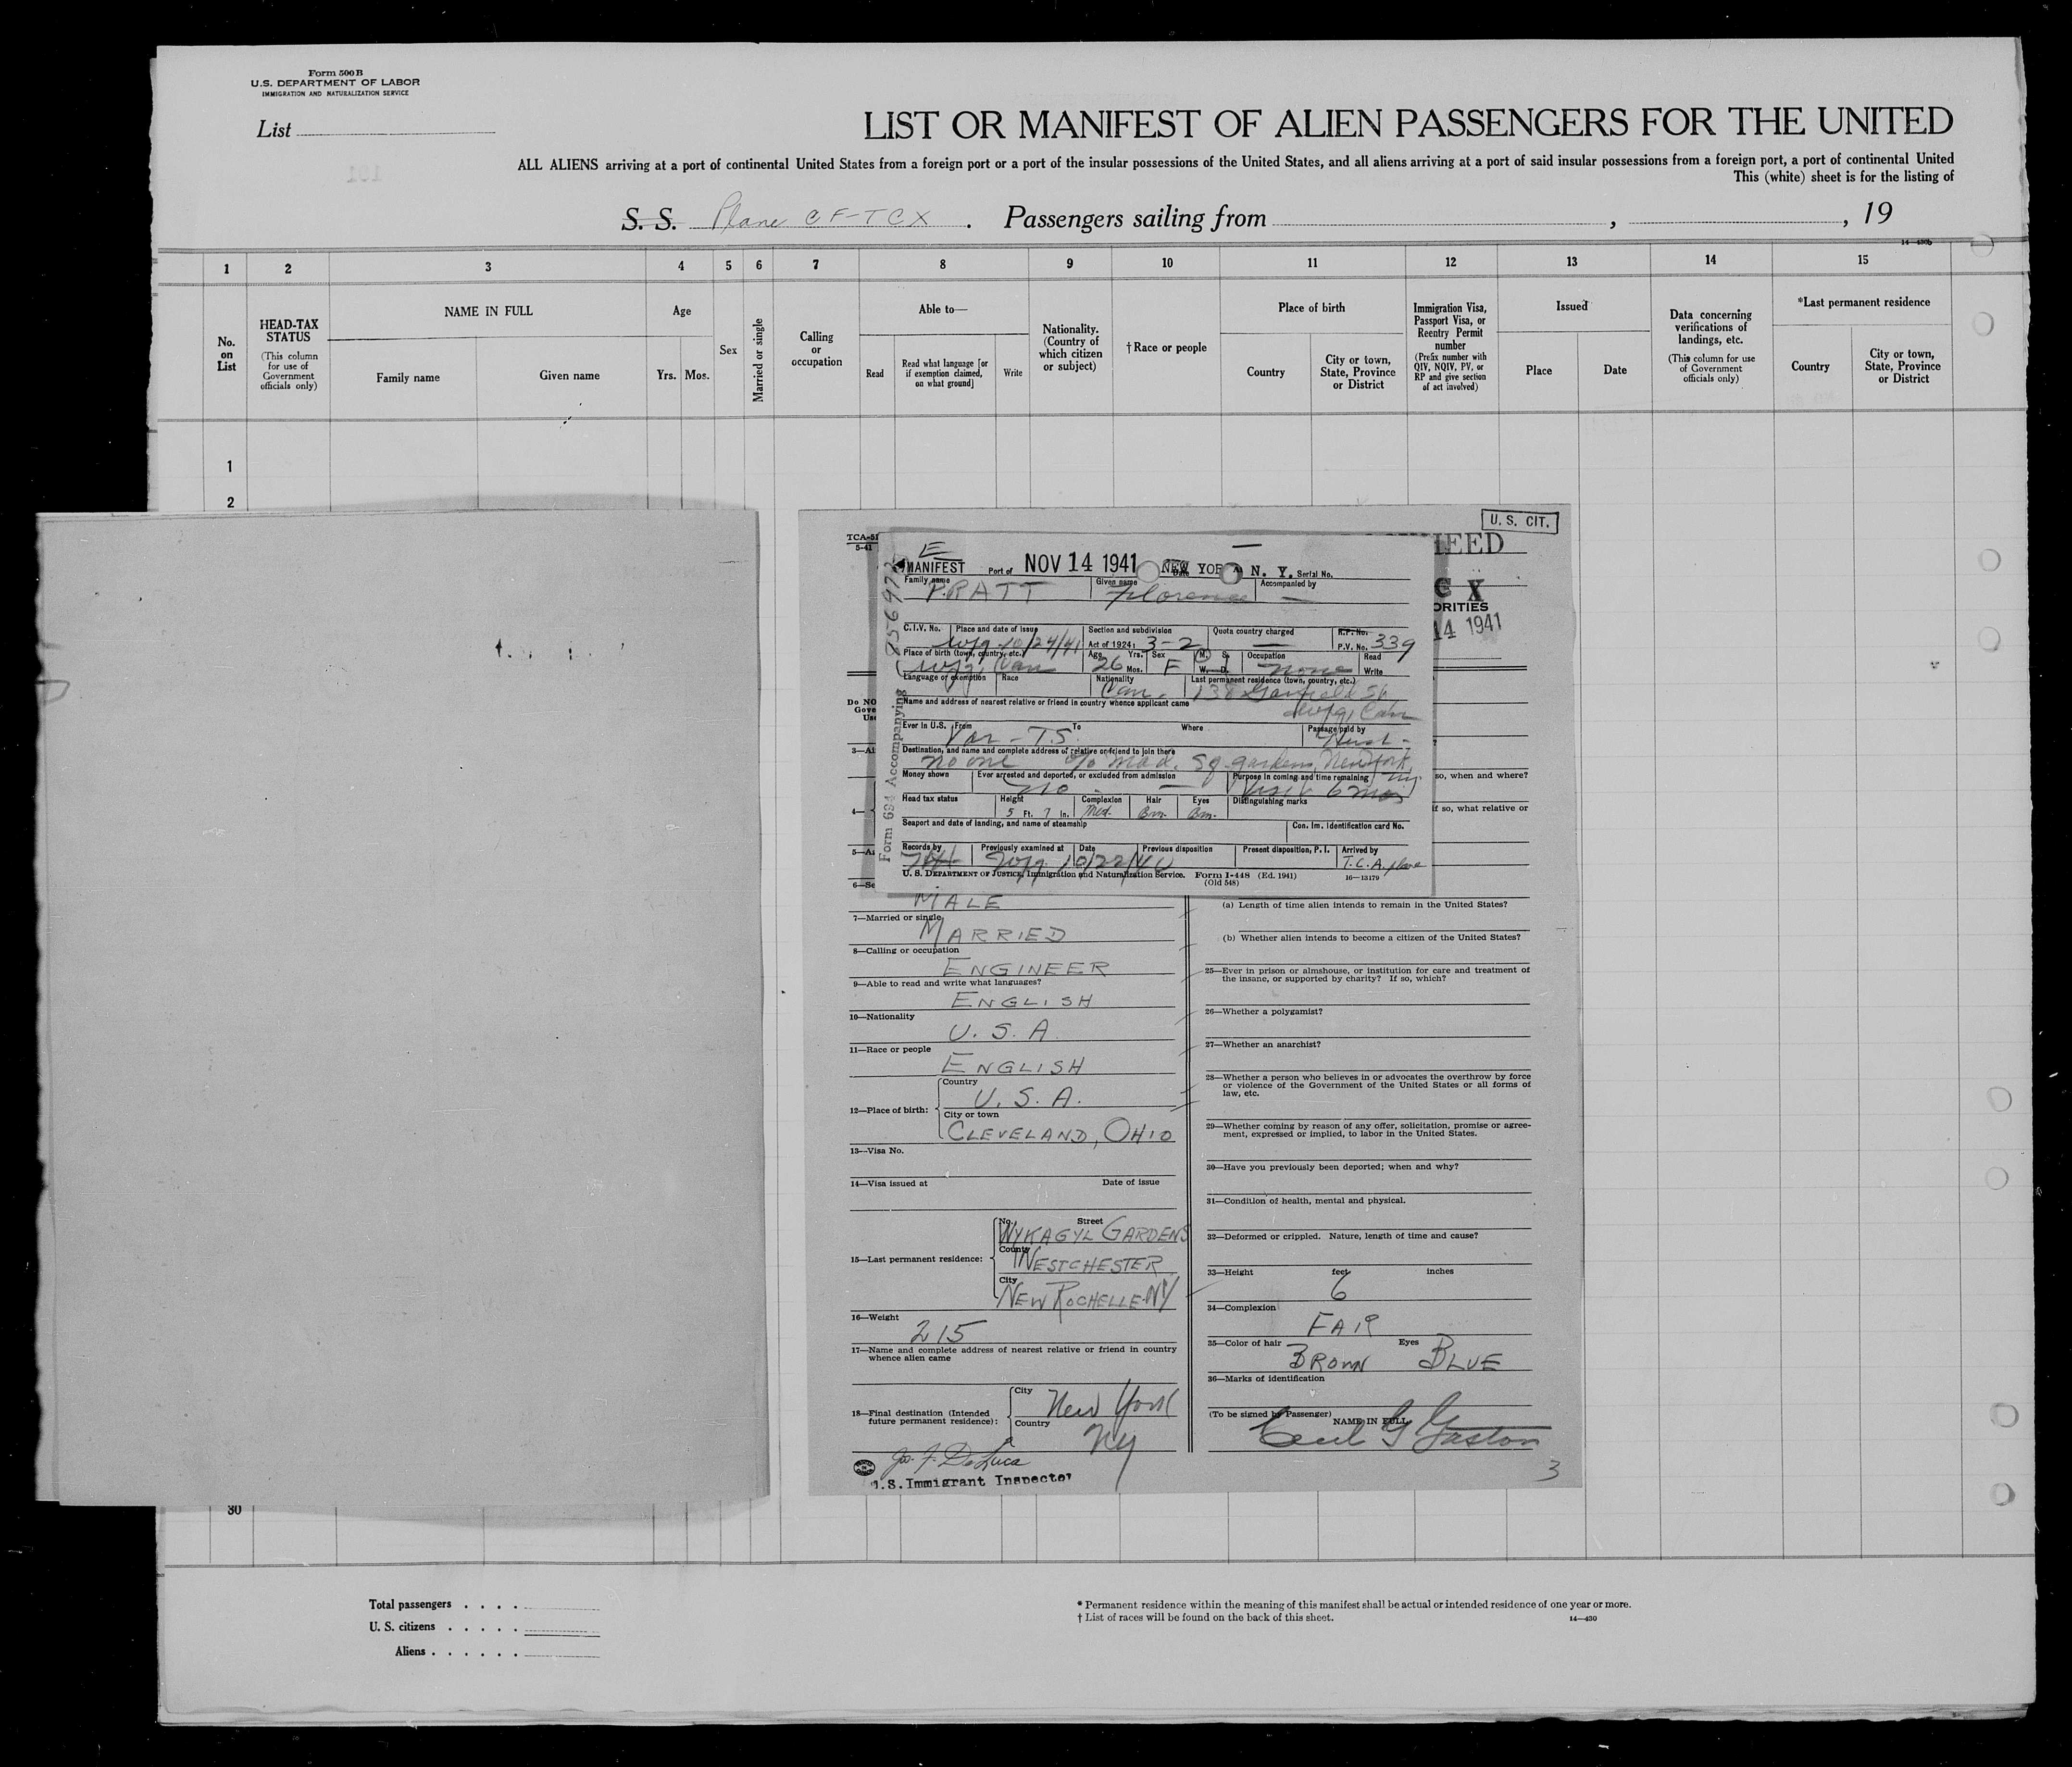 Form 500 B
U.S. DEPARTMENT OF LABOR
IMMIGRATION AND NATURALIZATION SERVICE
List
LIST OR MANIFEST OF ALIEN PASSENGERS FOR THE UNITED
ALL ALIENS arriving at a port of continental United States from a foreign port or a port of the insular possessions of the United States, and all aliens arriving at a port of said insular possessions from a foreign port, a port of continental United
This (white) sheet is for the listing of
S. S. Plane CF-TCX . Passengers sailing from , , 19
14—430b
1 2 3 4 5 6 7 8 9 10 11 12 13 14 15
No. on List
HEAD-TAX STATUS
(This column for use of Government officials only)
NAME IN FULL
Family name
Given name
Age
Yrs. Mos.
Sex
Married or single
Calling or occupation
Able to—
Read
Read what language [or if exemption claimed, on what ground]
Write
Nationality. (Country of which citizen or subject)
† Race or people
Place of birth
Country
City or town, State, Province or District
Immigration Visa, Passport Visa, or Reentry Permit number
(Prefix number with QIV, NQIV, PV, or RP and give section of act involved)
Issued
Place
Date
Data concerning verifications of landings, etc.
(This column for use of Government officials only)
*Last permanent residence
Country
City or town, State, Province or District
1
2
U. S. CIT.
TCA-51
5-41
C X
ORITIES
14 1941
E
MANIFEST Port of NOV 14 1941 NEW YORK N. Y. Serial No.
Family name PRATT Given name Florence Accompanied by —
C.I.V. No. Place and date of issue Wpg 10/24/41 Section and subdivision Act of 1924: 3-2 Quota country charged — R.P. No. P.V. No. 339
Place of birth (town, country, etc.) Wpg, Can Age 26 Yrs. Mos. Sex F M. S. W. D. Occupation none Read Write
Language or exemption Race Nationality Can. Last permanent residence (town, country, etc.) 138 Garfield St
Name and address of nearest relative or friend in country whence applicant came Wpg, Can
Ever in U.S. From To Where Passage paid by
Var - T.S. Hus. -
Destination, and name and complete address of relative or friend to join there
no one c/o Mad. Sq. Gardens, New York,
Money shown Ever arrested and deported, or excluded from admission Purpose in coming and time remaining N.Y.
No — Visit 6 mos
Head tax status Height 5 Ft. 7 In. Complexion Med. Hair Brn. Eyes Brn. Distinguishing marks
Seaport and date of landing, and name of steamship Con. Im. Identification card No.
Records by Previously examined at Wpg Date 10/22/40 Previous disposition Present disposition, P. I. Arrived by T.C.A. plane
U. S. DEPARTMENT OF JUSTICE, Immigration and Naturalization Service. Form I-448 (Ed. 1941)
(Old 548) 16—13179
Form 684 Accompanying
Do NO
Gove
Us
3—Al
4—
5—A
6—Se
so, when and where?
if so, what relative or
MALE
7—Married or single
MARRIED
8—Calling or occupation
ENGINEER
9—Able to read and write what languages?
ENGLISH
10—Nationality
U. S. A.
11—Race or people
ENGLISH
12—Place of birth:
Country
U. S. A.
City or town
CLEVELAND, OHIO
13—Visa No.
14—Visa issued at Date of issue
15—Last permanent residence:
No. Street
WYKAGYL GARDENS
County
WESTCHESTER
City
NEW ROCHELLE NY
16—Weight
215
17—Name and complete address of nearest relative or friend in country
whence alien came
18—Final destination (Intended
future permanent residence):
City New York
Country NY
Jos. F. DeLuca
U.S. Immigrant Inspector
(a) Length of time alien intends to remain in the United States?
(b) Whether alien intends to become a citizen of the United States?
25—Ever in prison or almshouse, or institution for care and treatment of
the insane, or supported by charity? If so, which?
26—Whether a polygamist?
27—Whether an anarchist?
28—Whether a person who believes in or advocates the overthrow by force
or violence of the Government of the United States or all forms of
law, etc.
29—Whether coming by reason of any offer, solicitation, promise or agree-
ment, expressed or implied, to labor in the United States.
30—Have you previously been deported; when and why?
31—Condition of health, mental and physical.
32—Deformed or crippled. Nature, length of time and cause?
33—Height feet inches
6
34—Complexion
FAIR
35—Color of hair Eyes
BROWN BLUE
36—Marks of identification
(To be signed by Passenger) NAME IN FULL
Cecil G Gaston
3
30
Total passengers . . . .
U. S. citizens . . . . .
Aliens . . . . . .
* Permanent residence within the meaning of this manifest shall be actual or intended residence of one year or more.
† List of races will be found on the back of this sheet. 14—430